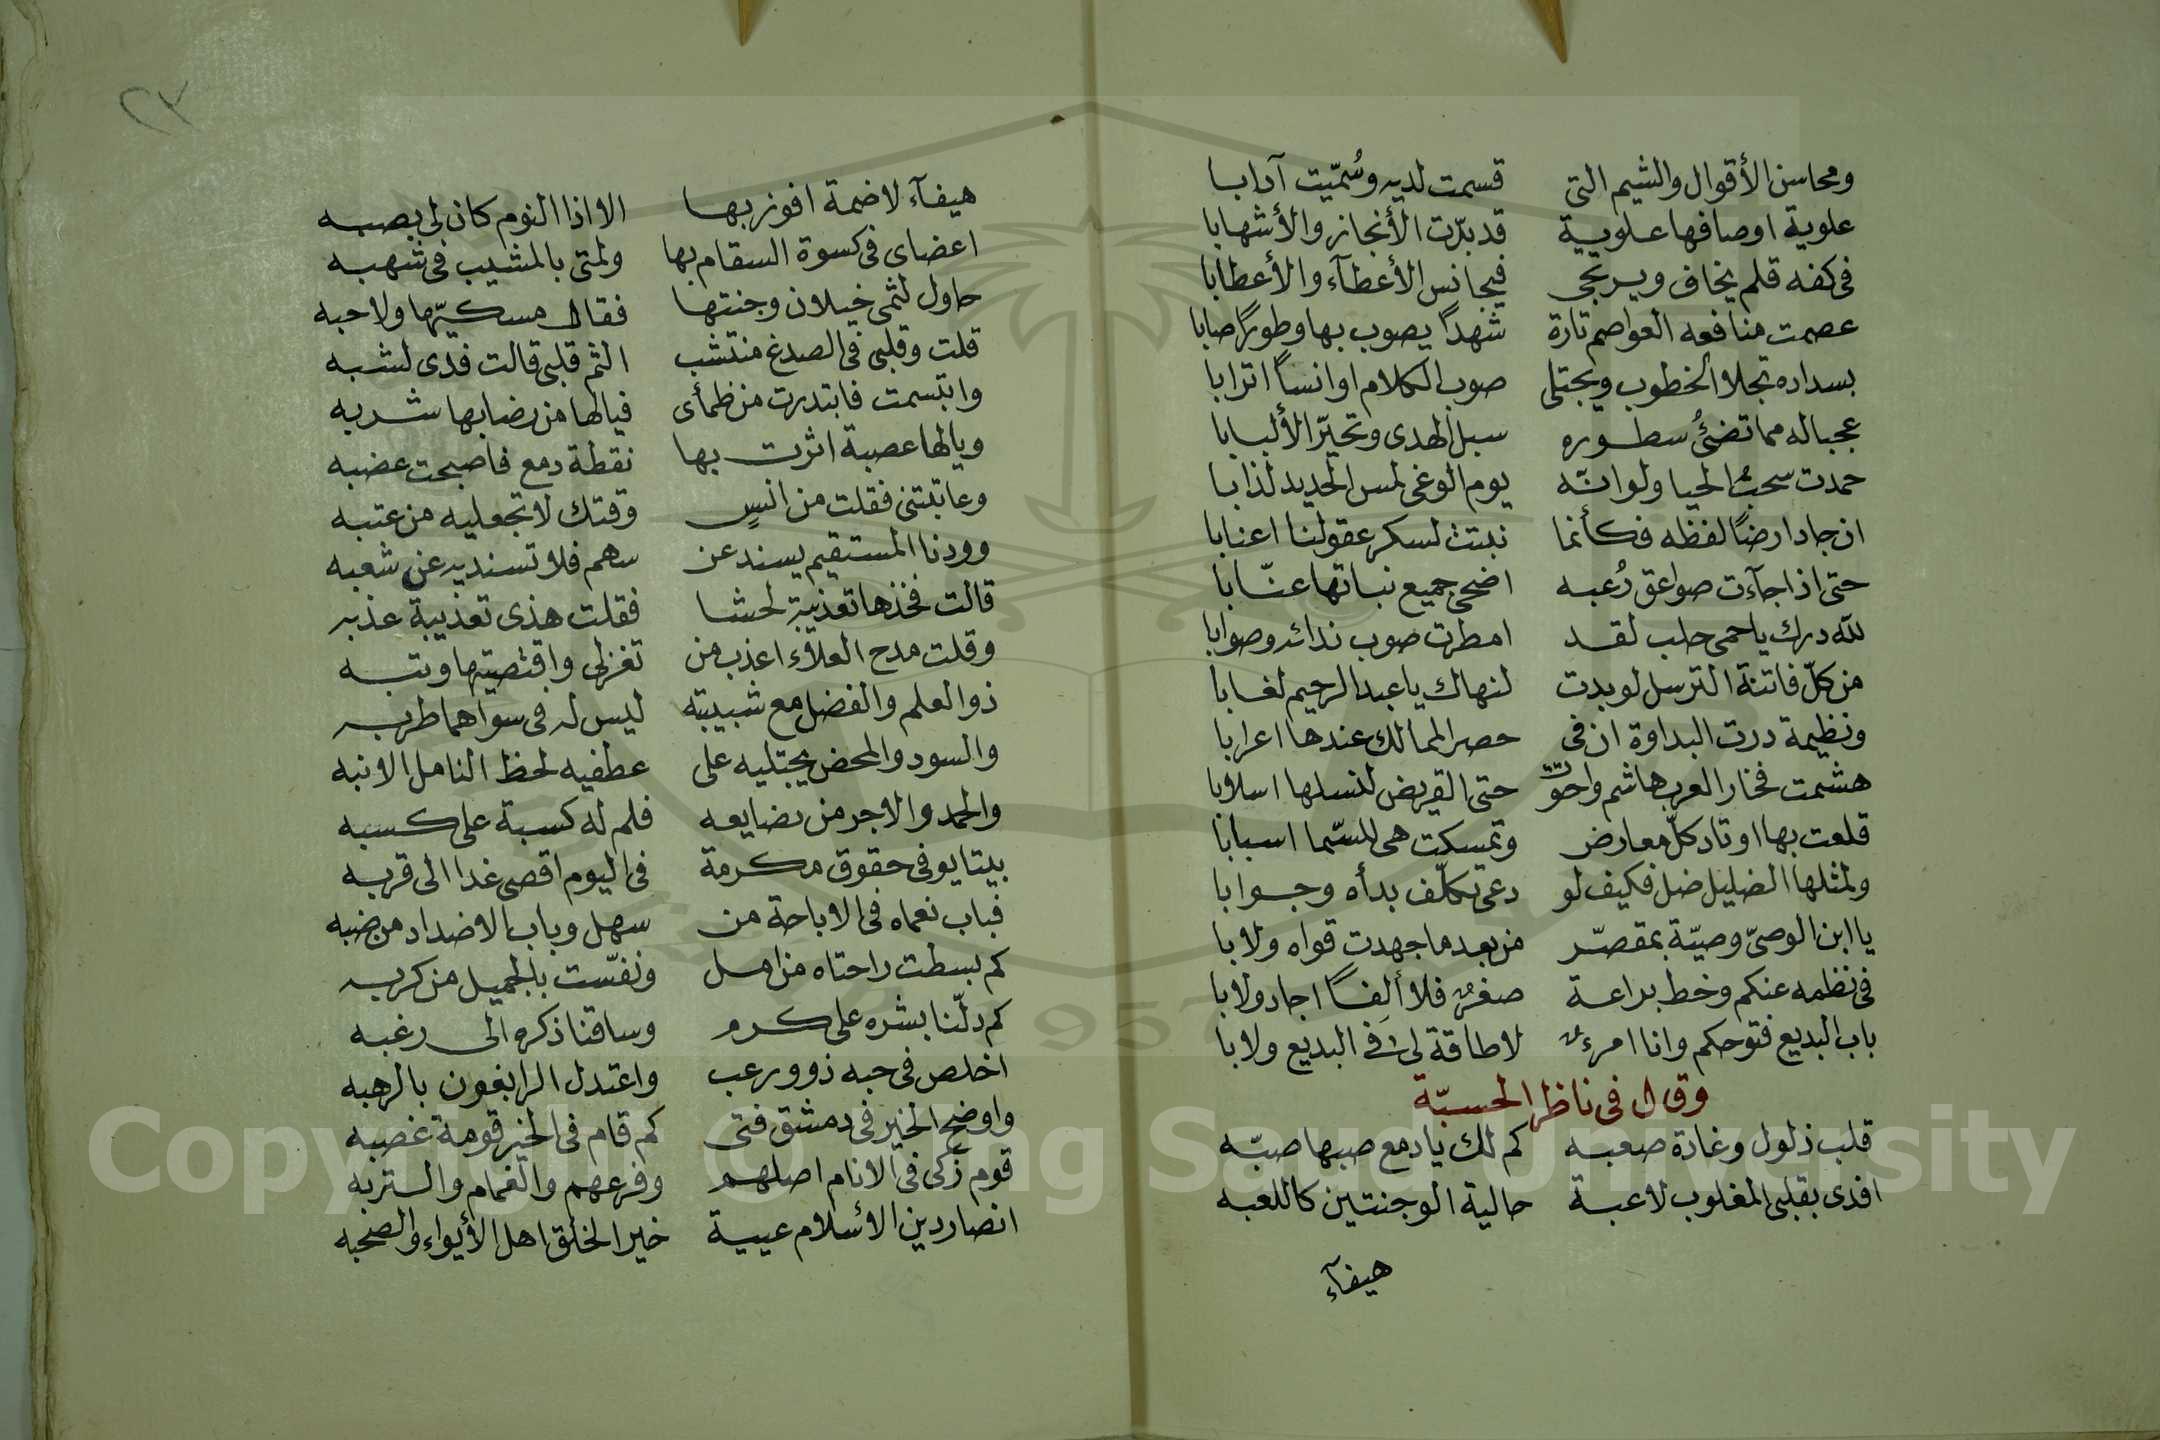 ومحاسن الأقوال والشيم التى قسمت لديه وسُمّيت آدابا
علوية اوصافها علوية قد بزّت الأنجاز والأشهابا
فى كفه قلم يخاف ويرتجى فيجانس الأعطآء والأعطابا
عصمت منافعه العواصم تارة شهدًا يصوب بها وطورًا صابا
بسداده تجلا الخطوب ويجتلى صوب الكلام اوانساً اترابا
عجبا له مما تضئُ سطوره سبل الهدى وتحيّر الألبابا
حمدت سحبُ الحيا ولو انّه يوم الوغى لمس الحديد لذابا
ان جاد ارضًا لفظه فكأنما نبتت لسكر عقولنا اعنابا
حتى اذا جآءت صواعق رُعبه اضحى جميع نباتها عنّابا
للّه درك يا حمى حلب لقد امطرت صوب ندائد وصوابا
من كلّ فاتنة الترسل لو بدت لنهاك يا عبد الرحيم لغابا
ونظيمة درت البداوة ان فى حصر الممالك عندها اعرابا
هشمت فخار العرب هاشم واحتوت حتى القريض لنسلها اسلابا
قلعت بها اوتاد كلّ معارض وتمسكت هى للسّما اسبابا
ولمثلها الضليل ضل فكيف لو دعى تكلّف بدأه وجوابا
يا ابن الوصىّ وصيّة بمقصّر من بعد ما جهدت قواه ولابا
فى نظمه عنكم وخط براعة صغرت فلا ألِفاً اجاد ولابا
باب البديع فتوحكم وانا امرء لا طاقة لى فى البديع ولابا
وقال فى ناظر الحسبّة
قلب ذلول وغادة صعبه كم لك يا دمع صبها صبّه
افدى بقلبى المغلوب لاعبة حالية الوجنتين كاللعبه
هيفآء
٢٣
هيفآء لا ضمة افوز بها الا اذا النوم كان لى بصبه
اعضاى فى كسوة السقام بها ولمتى بالمشيب فى شهبه
حاول لثمى خيلان وجنتها فقال مسكيّها ولا حبه
قلت وقلبى فى الصدغ منتشب الثم قلبى قالت فدى لشبه
وابتسمت فابتدرت من ظمأى فيالها من رضابها شربه
ويالها عصبة اثرت بها نقطة دمع فاصبحت عضبه
وعاتبتنى فقلت من انسٍ وقتك لا تجعليه من عتبه
وودنا المستقيم يسند عن سهم فلا تسنديه عن شعبه
قالت فخذها تعذيبة لحشا فقلت هذى تعذيبة عذبه
وقلت مدح العلاء اعذب من تغزلى واقتصيتها وتبه
ذو العلم والفضل مع شبيبته ليس له فى سواهما طربه
والسود والمحض يجتليه على عطفيه لحظ النامل الانبه
والحمد والاجر من بضايعه فلم له كسبة على كسبه
بيتا يوفى حقوق مكرمة فى اليوم اقصى غدا الى قربه
فباب نعماه فى الاباحة من سهل وباب الاضداد من ضبه
كم بسطت راحتاه من امل ونفّست بالجميل من كربه
كم دلّنا بشره على كرم وساقنا ذكره الى رغبه
اخلص فى حبه ذوو رعب واعتدل الرابغون بالرهبه
واوضح الخير فى دمشق فتى كم قام فى الخير قومة غصبه
قوم زكى فى الانام اصلهم وفرعهم والغمام والتربه
انصار دين الاسلام عيبة خير الخلق اهل الأيواء والصحبه